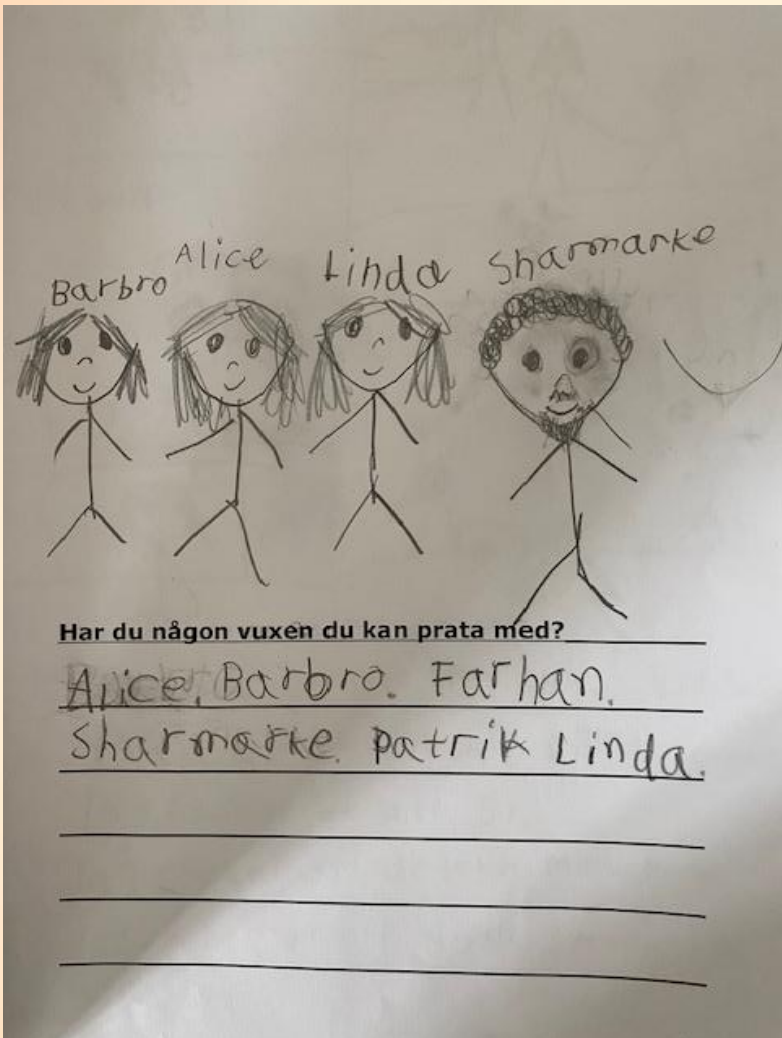 Barbro Alice Linda Sharmarke
Har du någon vuxen du kan prata med?
Alice. Barbro. Farhan.
Sharmarke. Patrik Linda.